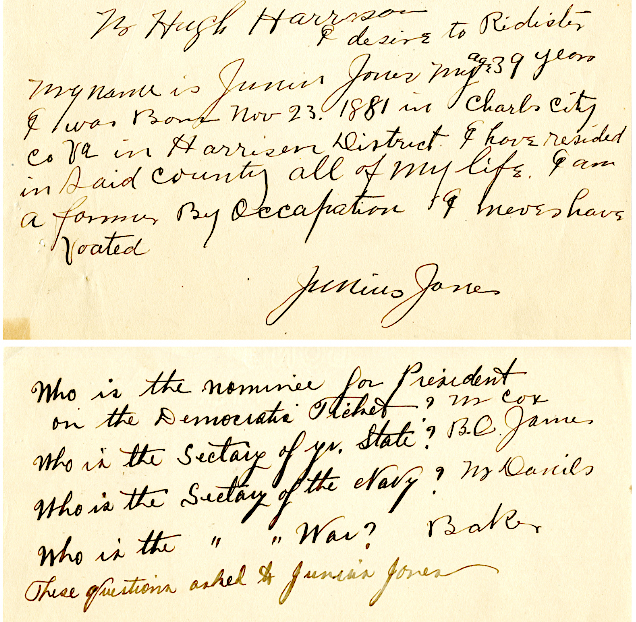 Mr Hugh Harrison
I desire to Ridister
My name is Junius Jones My age 39 years
I was Born Nov 23. 1881 in Charls City
Co Va in Harrison District. I have resided
in said county all of my life. I am
a farmer By Occapation I never have
voated
Junius Jones
Who is the nominee for President
on the Democratic Ticket? Mr Cox
Who is the Sectary of yr. State? B.O. James
Who is the Sectary of the Navy? Mr Daniels
Who is the " " War? Baker
These questions asked to Junius Jones